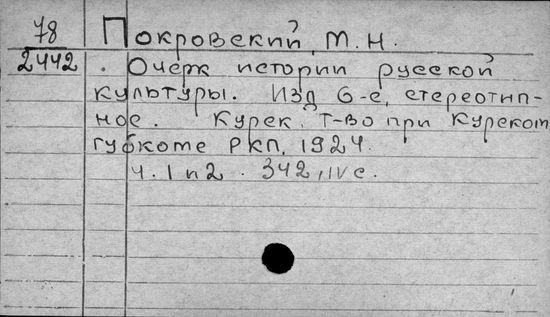 78 Покровский, М.Н.
2442 . Очерк истории русской
культуры. Изд 6-е, стереотип-
ное. Курск, Т-во при Курском
губкоме РКП, 1924.
Ч. 1 и 2. 342, IV с.